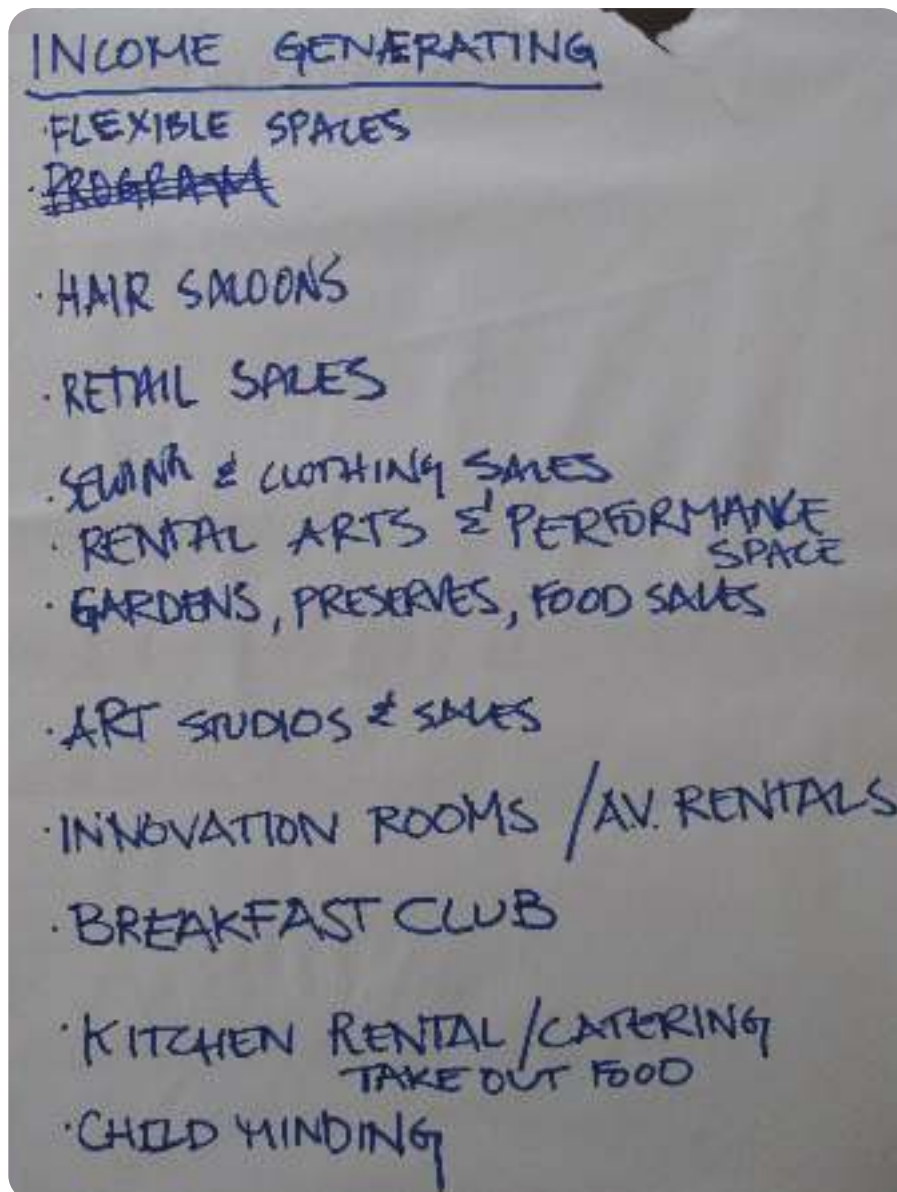 INCOME GENERATING
·FLEXIBLE SPACES
·PROGRAM
·HAIR SALOONS
·RETAIL SALES
·SEWING & CLOTHING SALES
·RENTAL ARTS & PERFORMANCE
SPACE
·GARDENS, PRESERVES, FOOD SALES
·ART STUDIOS & SALES
·INNOVATION ROOMS / A.V. RENTALS
·BREAKFAST CLUB
·KITCHEN RENTAL / CATERING
TAKE OUT FOOD
·CHILD MINDING